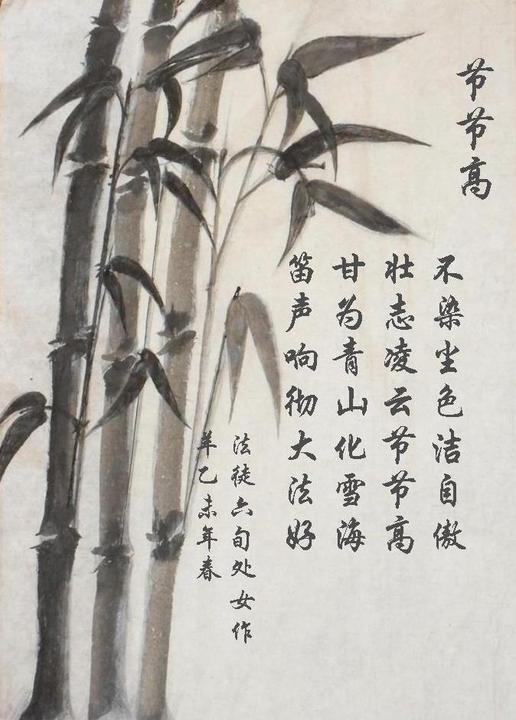 节节高
不染尘色洁自傲
壮志凌云节节高
甘为青山化雪海
笛声响彻大法好
法徒六旬处女作
羊乙未年春